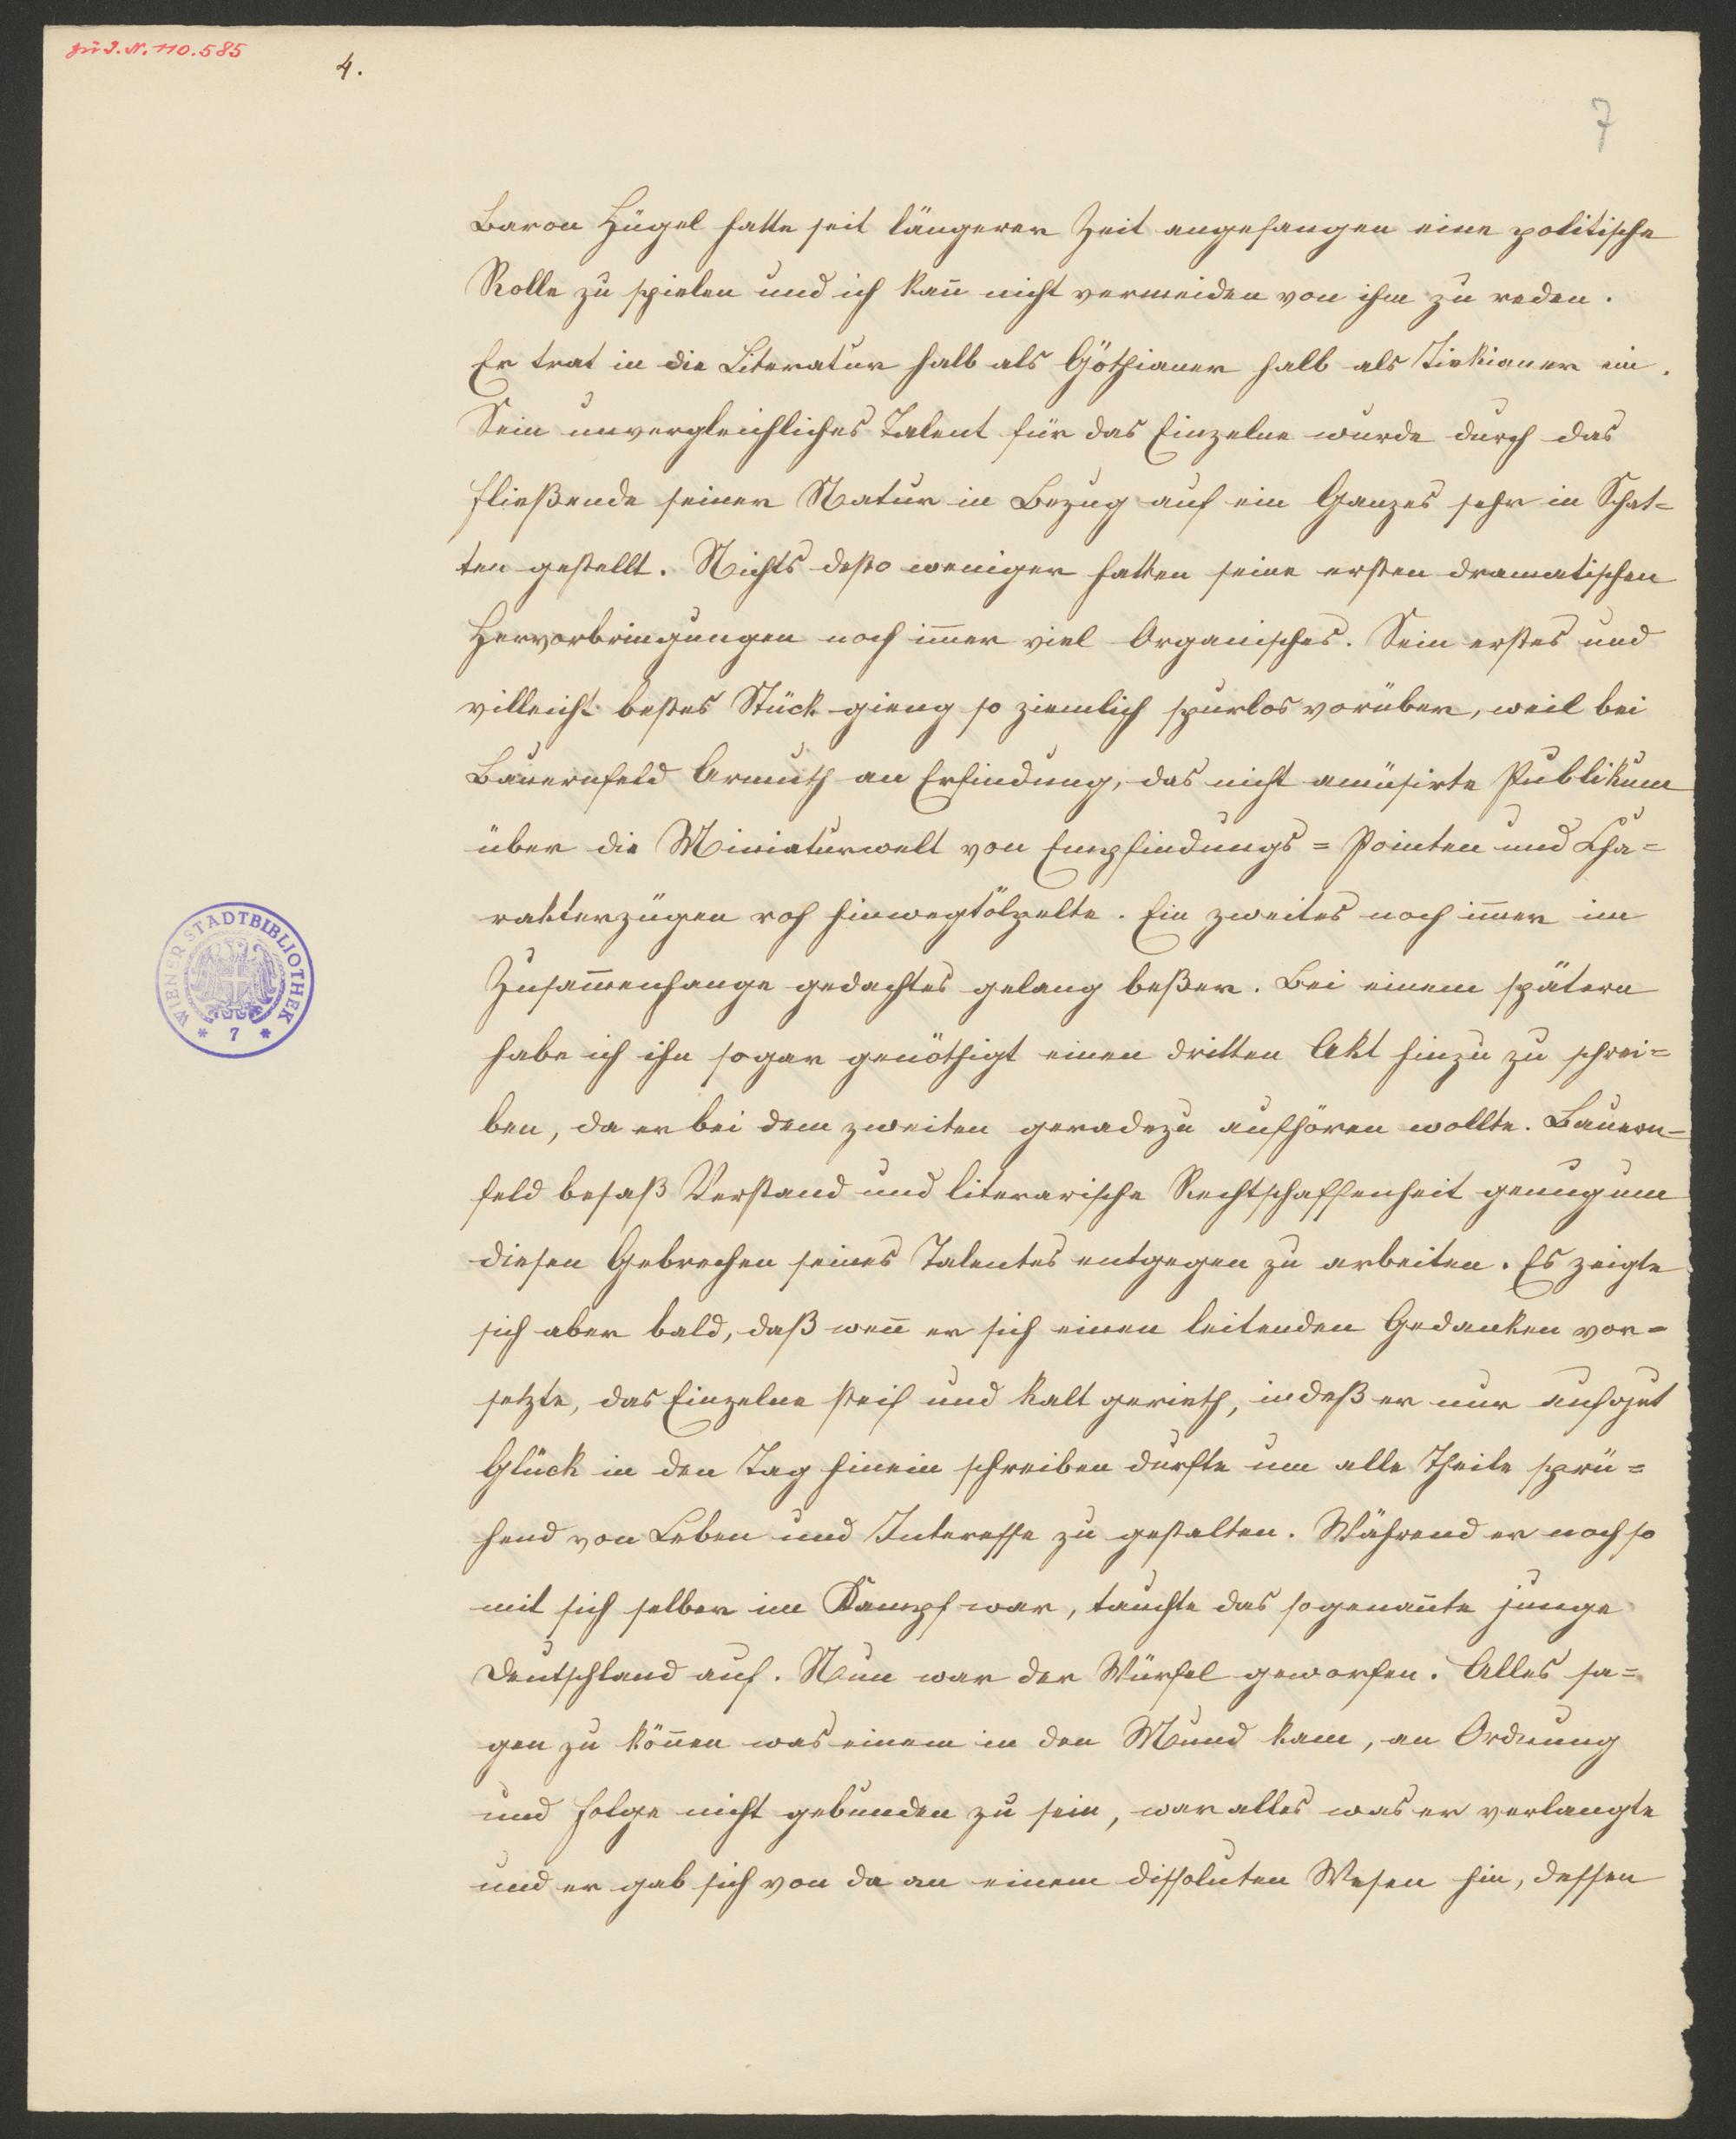 zu I.N. 110.585
4.
7
Baron Hügel hatte seit längerer Zeit angefangen eine politische
Rolle zu spielen und ich kan̄ nicht vermeiden von ihm zu reden.
Er trat in die Literatur halb als Göthianer halb als Tiekianer ein.
Sein unvergleichliches Talent für das Einzelne wurde durch das
fließende seiner Natur in Bezug auf ein Ganzes sehr in Schat=
ten gestellt. Nichts desto weniger hatten seine ersten dramatischen
Hervorbringungen noch im̄er viel Organisches. Sein erstes und
villeicht bestes Stück gieng so ziemlich spurlos vorüber, weil bei
Bauernfeld Armuth an Erfindung, das nicht amüsirte Publikum
über die Miniaturwelt von Empfindungs=Pointen und Cha=
rakterzügen roh hinwegtölpelte. Ein zweites noch im̄er im
Zusam̄enhange gedachtes gelang beßer. Bei einem spätern
habe ich ihn sogar genöthigt einen dritten Akt hinzu zu schrei=
ben, da er bei dem zweiten geradezu aufhören wollte. Bauern=
feld besaß Verstand und literarische Rechtschaffenheit genug um
diesen Gebrechen seines Talentes entgegen zu arbeiten. Es zeigte
sich aber bald, daß wen̄ er sich einen leitenden Gedanken vor=
setzte, das Einzelne steif und kalt gerieth, indeß er nur auf gut
Glück in den Tag hinein schreiben durfte um alle Theile sprü=
hend von Leben und Interesse zu gestalten. Während er noch so
mit sich selber im Kampf war, tauchte das sogenan̄te junge
Deutschland auf. Nun war der Würfel geworfen. Alles sa=
gen zu kön̄en was einem in den Mund kam, an Ordnung
und Folge nicht gebunden zu sein, war alles was er verlangte
und er gab sich von da an einem dissoluten Wesen hin, dessen
WIENER STADTBIBLIOTHEK
* 7 *